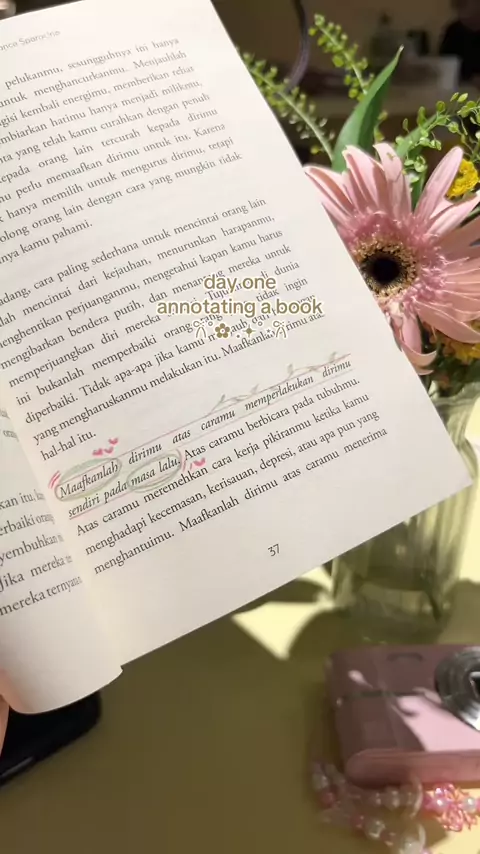 pelukanmu, sesungguhnya ini hanya
untuk menghancurkanmu. Menjauhlah
kembali energimu, memberikan rehat
hatimu hanya menjadi milikmu,
yang telah kamu curahkan dengan penuh
kepada orang lain tercurah kepada dirimu
perlu memaafkan dirimu untuk itu. Karena
hanya memilih untuk mengurus dirimu, tetapi
orang lain dengan cara yang mungkin tidak
kamu pahami.
cara paling sederhana untuk mencintai orang lain
mencintai dari kejauhan, menurunkan harapanmu,
menghentikan perjuanganmu, mengetahui kapan kamu harus
mengibarkan bendera putih, dan menantang mereka untuk
memperjuangkan diri mereka dunia
day one
annotating a book
ini bukanlah memperbaiki orang tidak ingin
diperbaiki. Tidak apa-apa jika kamu
yang mengharuskanmu melakukan itu. Maafkanlah
hal-hal itu.
Maafkanlah dirimu atas caramu memperlakukan dirimu
sendiri pada masa lalu. Atas caramu berbicara pada tubuhmu.
Atas caramu meremehkan cara kerja pikiranmu ketika kamu
menghadapi kecemasan, kerisauan, depresi, atau apa pun yang
menghantuimu. Maafkanlah dirimu atas caramu menerima
37
jika mereka
mereka ternyata